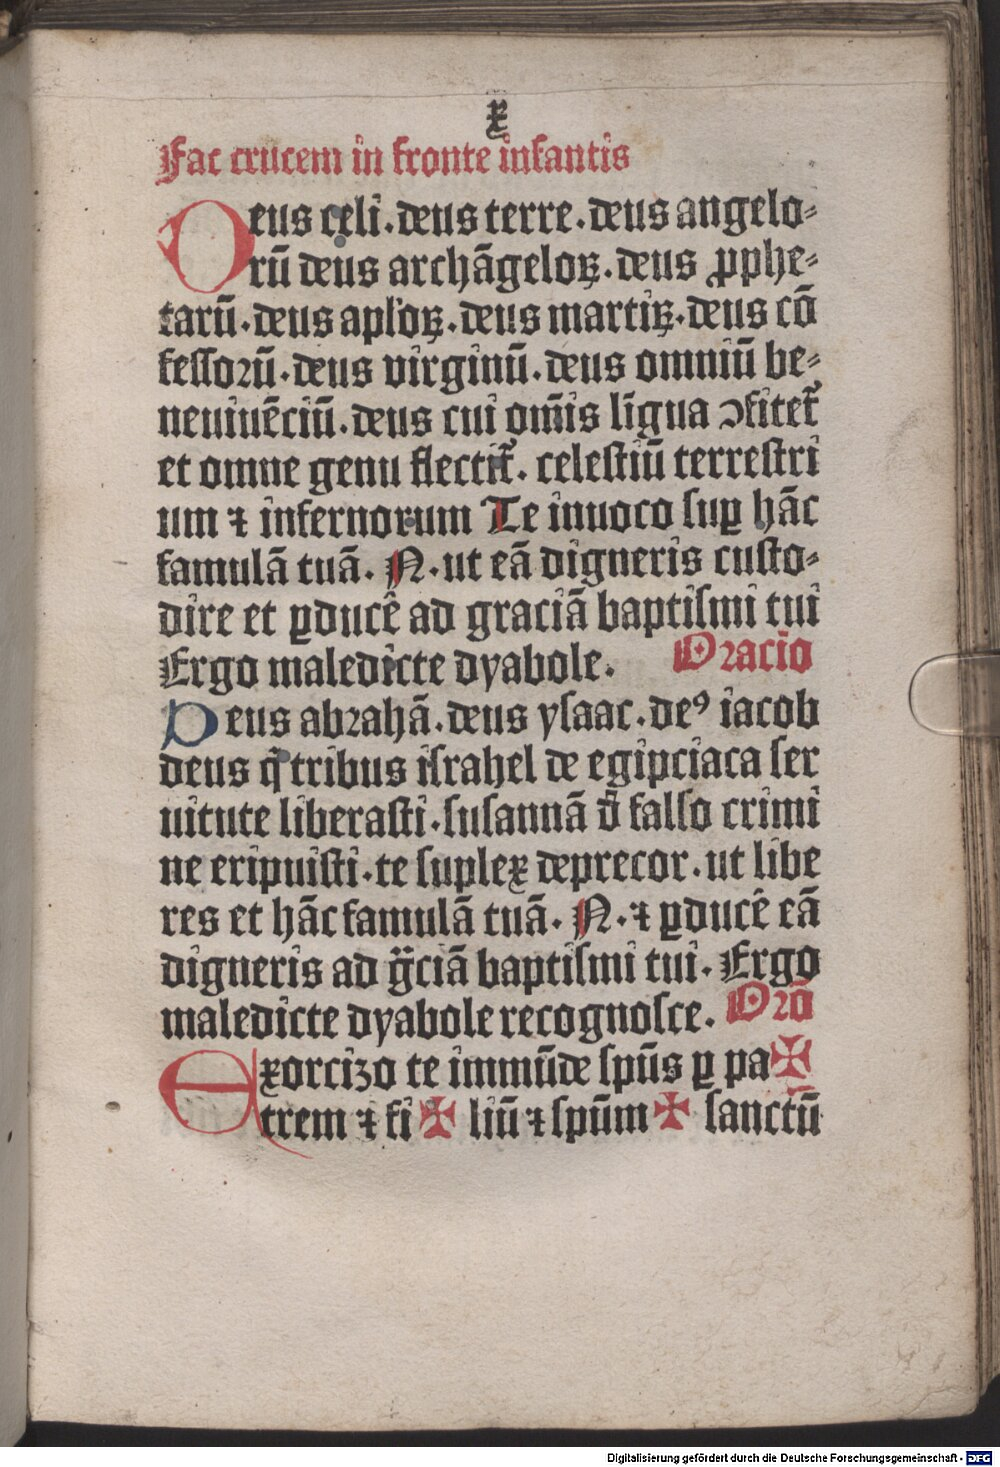 x
Fac crucem in fronte infantis
Deus celi. deus terre. deus angelo⸗
rū deus archāgeloꝝ. deus ꝓphe⸗
tarū. deus apl'oꝝ. deus martiꝝ. deus cō
fessorū. deus virginū. deus omniū be⸗
neuiuēciū. deus cui om̄is lingua ↄfitet᷑
et omne genu flectit᷑. celestiū terrestri
um ⁊ infernorum Te inuoco suꝑ hāc
famulā tuā. N. ut eā digneris custo⸗
dire et ꝑducē ad graciā baptismi tui
Ergo maledicte dyabole. Oracio
Deus abrahā. deus ysaac. deꝰ iacob
deus q̄ tribus israhel de egipciaca ser
uitute liberasti. susannā d̄ falso crimi
ne eripuisti. te suplex deprecor. ut libe
res et hāc famulā tuā. N. ⁊ ꝑducē eā
digneris ad gͣciā baptismi tui. Ergo
maledicte dyabole recognosce. Orō
Exorcizo te immūde spūs ꝑ pa✠
trem ⁊ fi✠ liū ⁊ spūm✠ sanctū
Digitalisierung gefördert durch die Deutsche Forschungsgemeinschaft - DFG